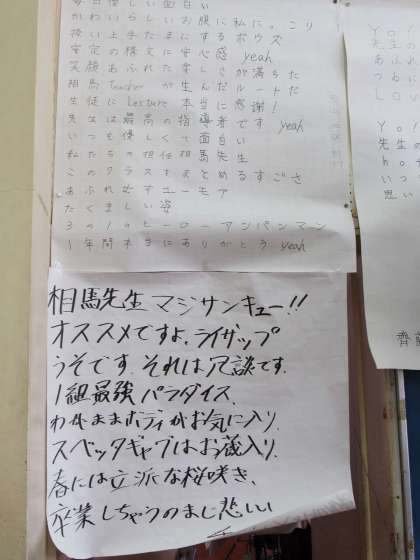 毎日優しい面白い
かわいらしいお腹に私に。こり
扱い上手たまにするボウズ
安定の構文に安心感 yeah
笑顔あふれた楽しさが満ちた
相馬 Teacher が生んだルートだ
生徒に Lecture 本当に感謝!
先生は最高の指導者です yeah
いつも優しくて面白い
私たちの担任相馬先生
このクラスをまとめるすごさ
あふれ出すユーモア
たくましい姿
3の1のヒーローアンパンマン
1年間本当にありがとう yeah
相馬先生マジサンキュー!!
オススメですよ、ライザップ
うそです。それは冗談です。
1組最強パラダイス、
わがままボディがお気に入り、
スベッタギャグはお蔵入り、
春には立派な桜咲き、
卒業しちゃうのまじ悲しい
Yo!
先生の
あふれ
Yo!
先生の
いつ
思い